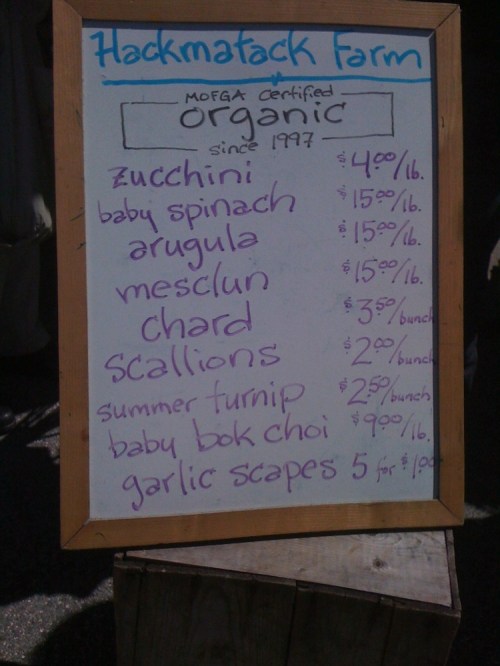 Hackmatack Farm
MOFGA Certified
organic
since 1997
zucchini $4.00/lb.
baby spinach $15.00/lb.
arugula $15.00/lb.
mesclun $15.00/lb.
chard $3.50/bunch
scallions $2.00/bunch
summer turnip $2.50/bunch
baby bok choi $9.00/lb.
garlic scapes 5 for $1.00